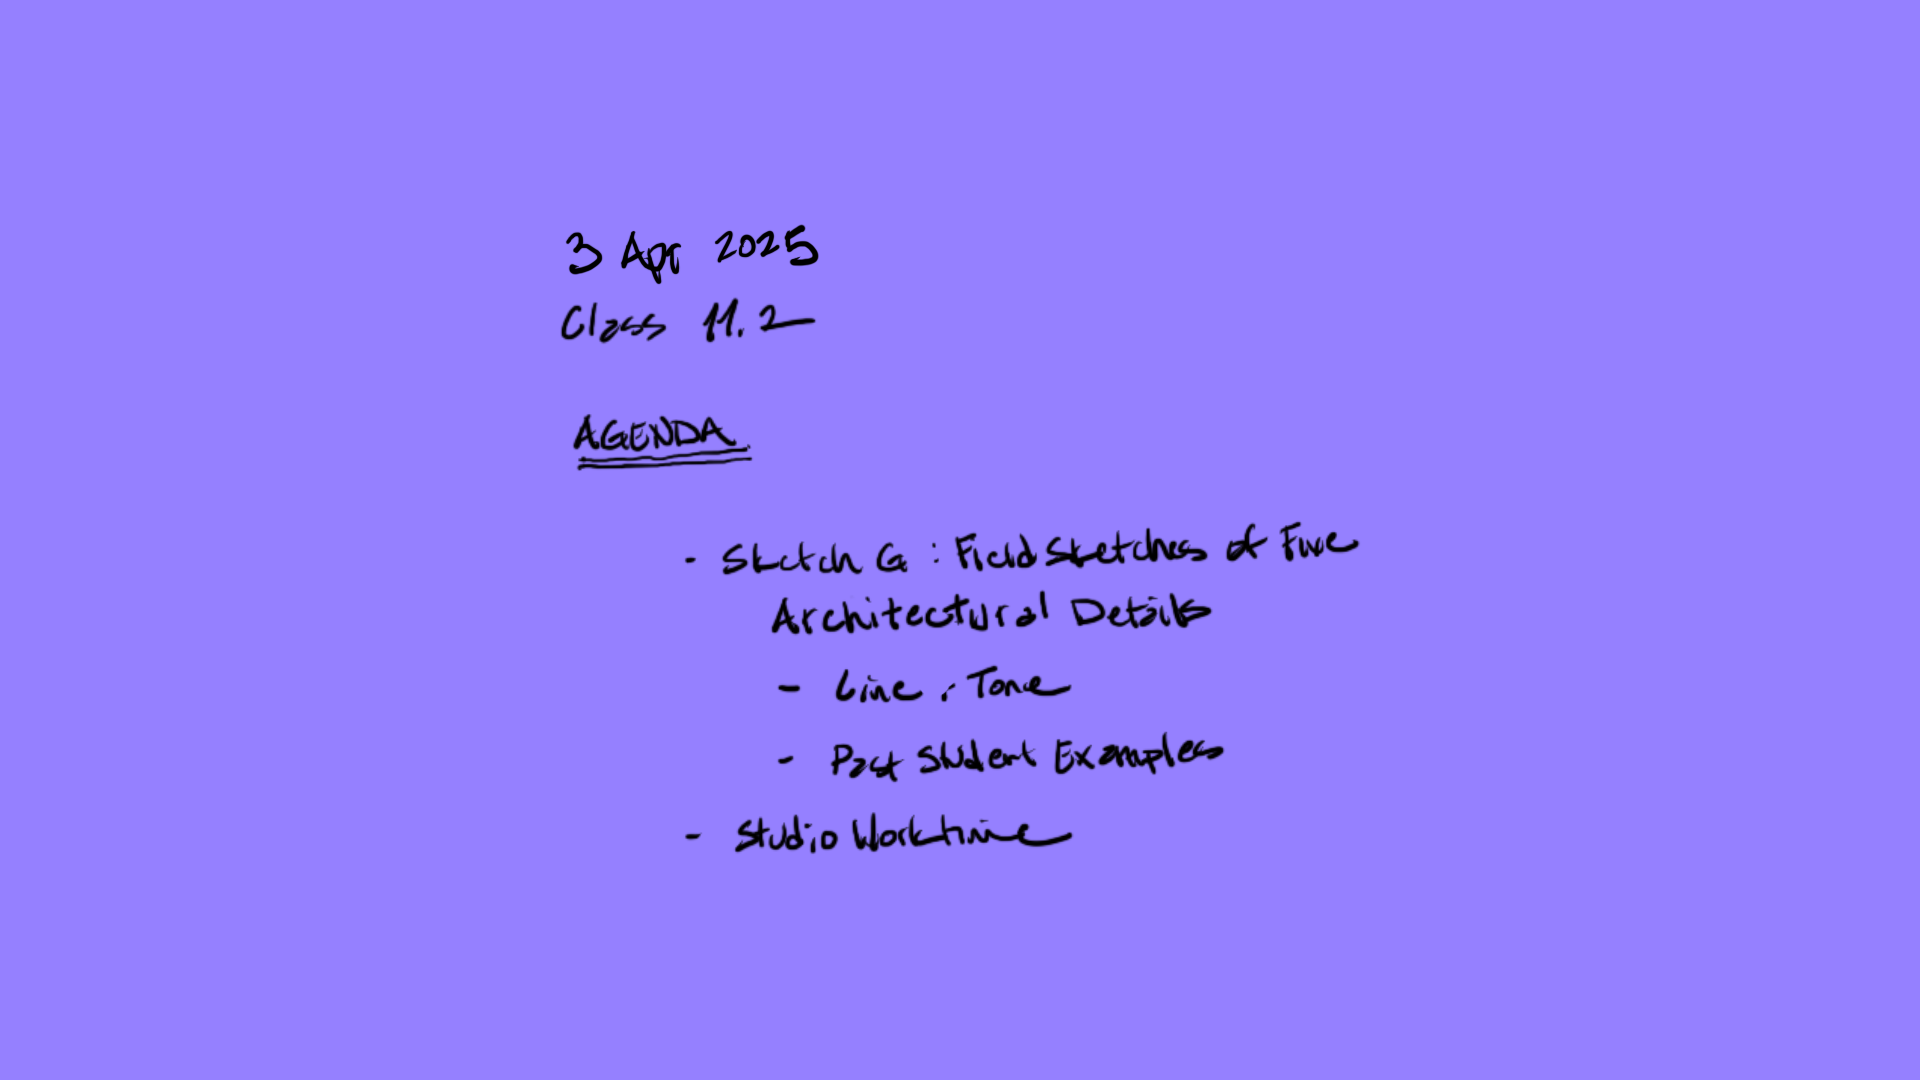 3 Apr 2025
Class 11.2
AGENDA
- Sketch G : Field Sketches of Five
Architectural Details
- Line, Tone
- Past Student Examples
- Studio Worktime